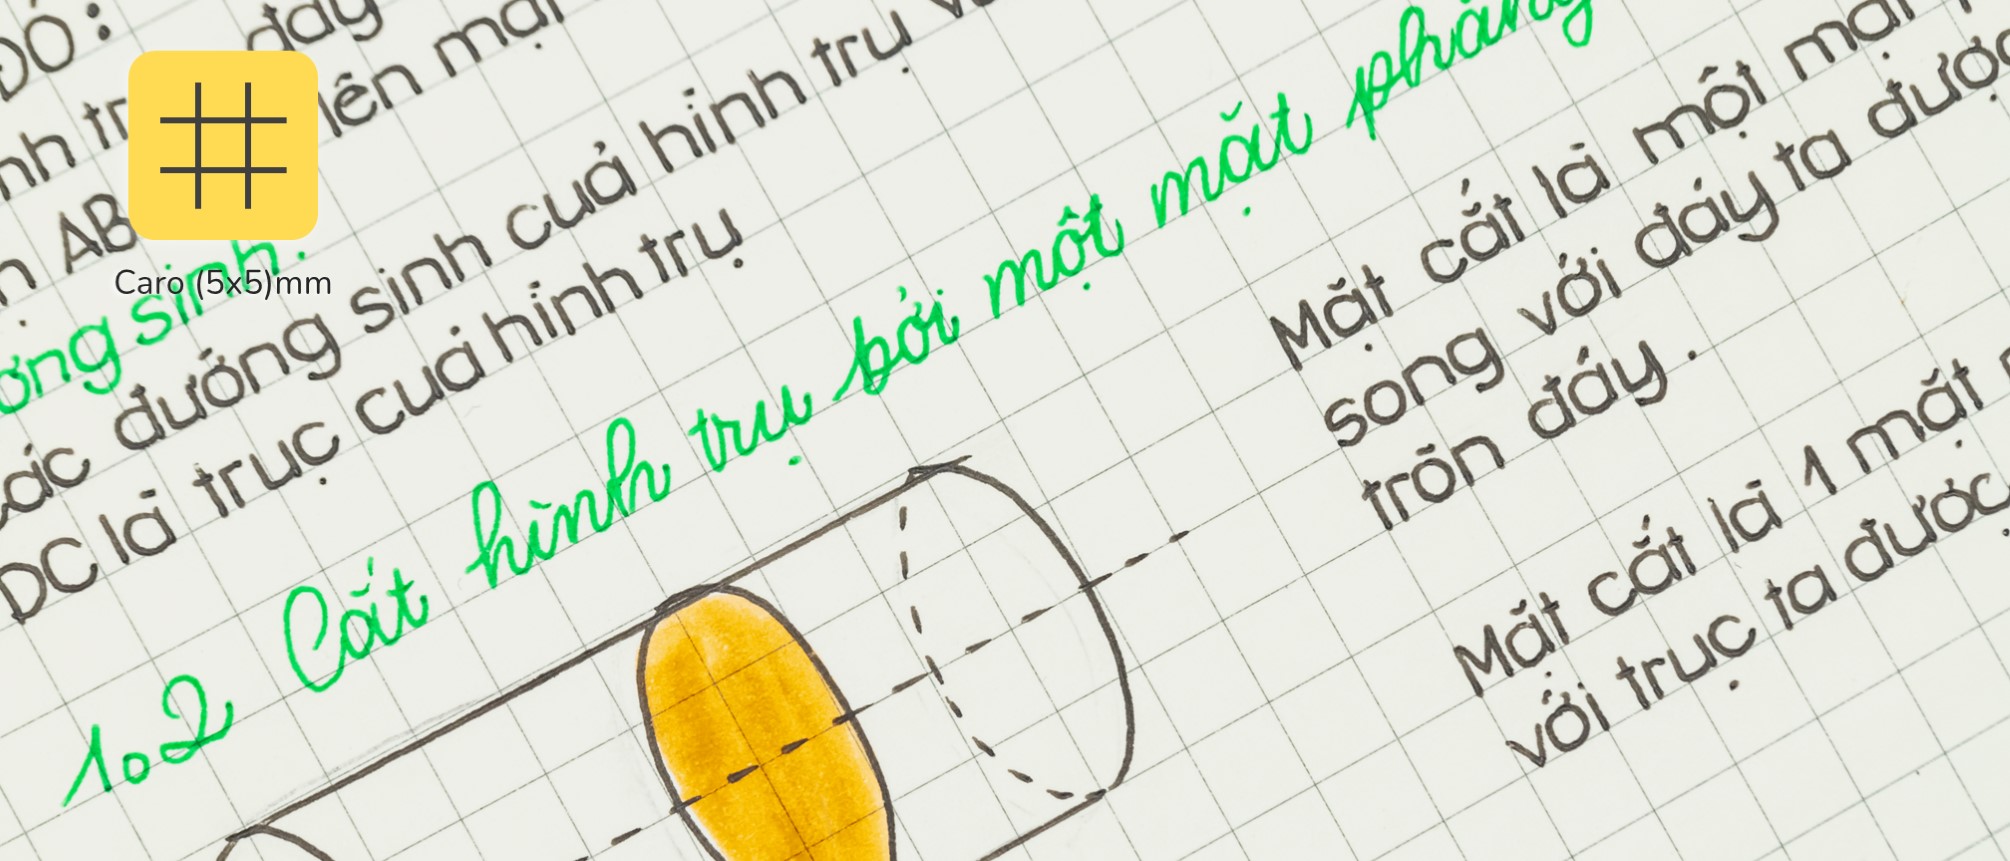 ĐÓ:
đáy
lên mặt
AB
Caro (5x5)mm
ờng sinh.
các đường sinh của hình trụ
DC là trục của hình trụ
1.2 Cắt hình trụ bởi một mặt phẳng
Mặt cắt là một mặt
song với đáy ta được
tròn đáy.
Mặt cắt là 1 mặt
với trục ta được